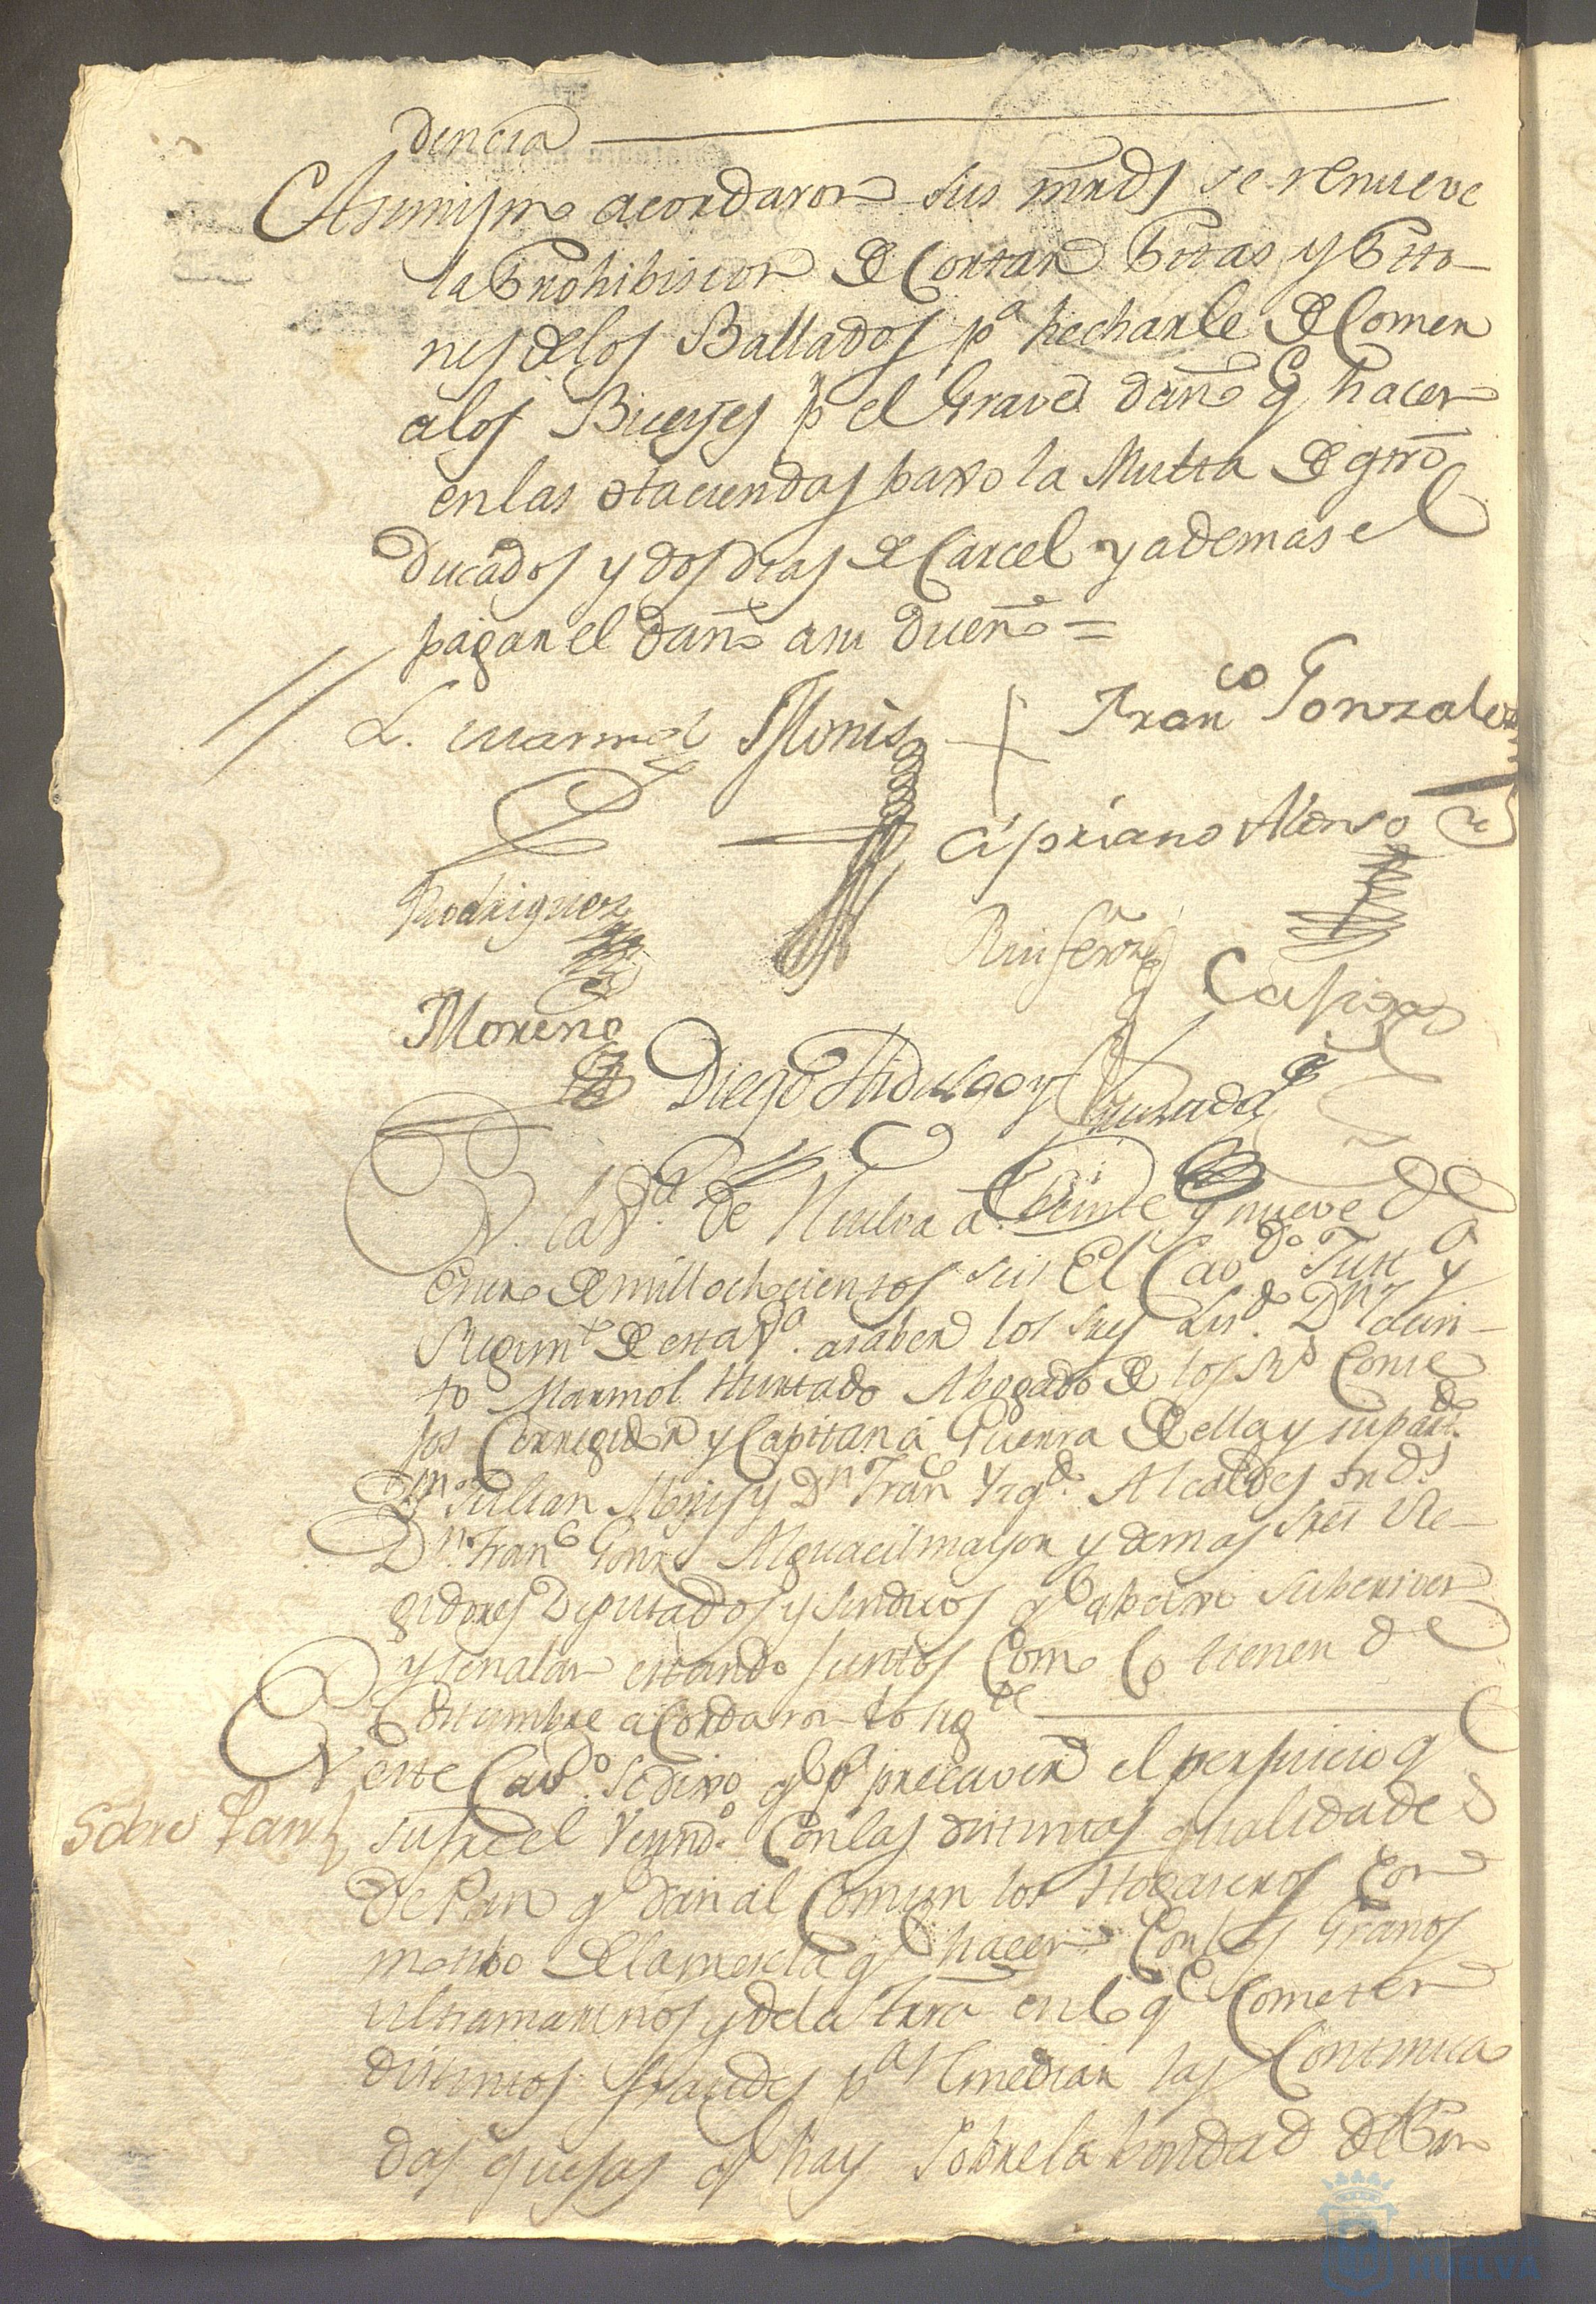 dencia
Asimismo acordaron sus mrds se renueve
la Prohibision de Cortar Pitas y Pito-
nes de los Ballados pa hecharle de Comer
a los Bueyes pr el Grave daño q hacen
en las Haciendas baxo la Multa de qtro
Ducados y dos dias de Carcel y ademas el
pagar el daño a su dueño =
L. Marmol Monis + Franco Gonzalez
Cipriano Alonso
Rodriguez
Ruiseñor
Moreno
Diego Hidalgo y Quesada
En la Va de Huelva a Veinte y nueve de
Enero de mill ochocientos seis El Cavdo Justa y
Regimto de esta Va a saber los Sres Lisdo Dn Jacin-
to Marmol Hurtado Abogado de los Rs Conse
jos Corregidor y Capitan a Guerra de ella y su partdo
Dn Julian Monis y Dn Franco Alcaldes Ordos
Dn Franco Gonzs Alguacil mayor y demas Sres Re-
gidores Diputados y Sindicos q abaxo subscriven
y señalan estando juntos Como lo tienen de
Costumbre acordaron lo sigte
En este Cavdo se dixo qe pa precaver el perjuicio q
Sobre Pan
sufre el Vecindo Con las distintas qualidades
de Pan q dan al Comun los Hogaseros Con
motibo de la mescla q hacen Con los Granos
ultramarinos y de la Tierra en lo qe Cometen
distintos fraudes pa remediar las Continua
das quejas q hay sobre la bondad del Pan
HUELVA